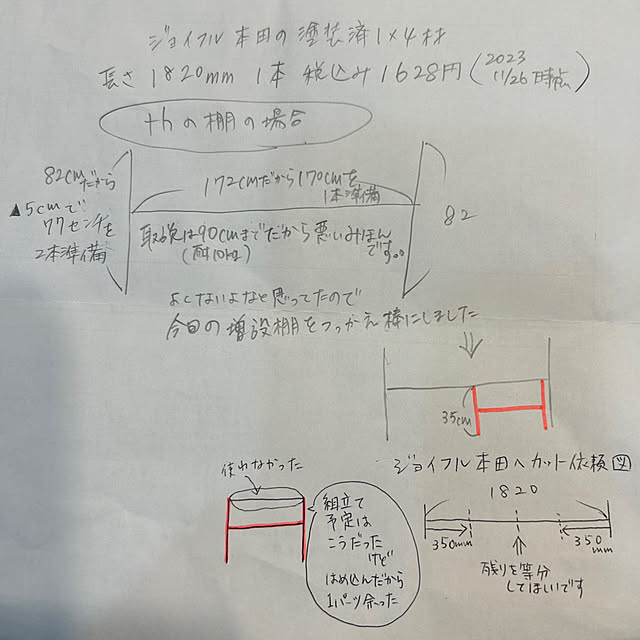 ジョイフル本田の塗装済1×4材
長さ1820mm 1本 税込み1628円(2023 11/26時点)
thの棚の場合
82cmだから
▲5cmで
77センチを
2本準備
172cmだから170cmを
1本準備
82
取説は90cmまでだから悪いみほん
(耐10kg)です。。
よくないよなと思ってたので
今回の増設棚をつっかえ棒にしました
35cm
使わなかった
組立て
予定は
こうだった
けど
はめ込んだから
1パーツ余った
ジョイフル本田へカット依頼図
1820
350mm
350
mm
残りを等分
してほしいです